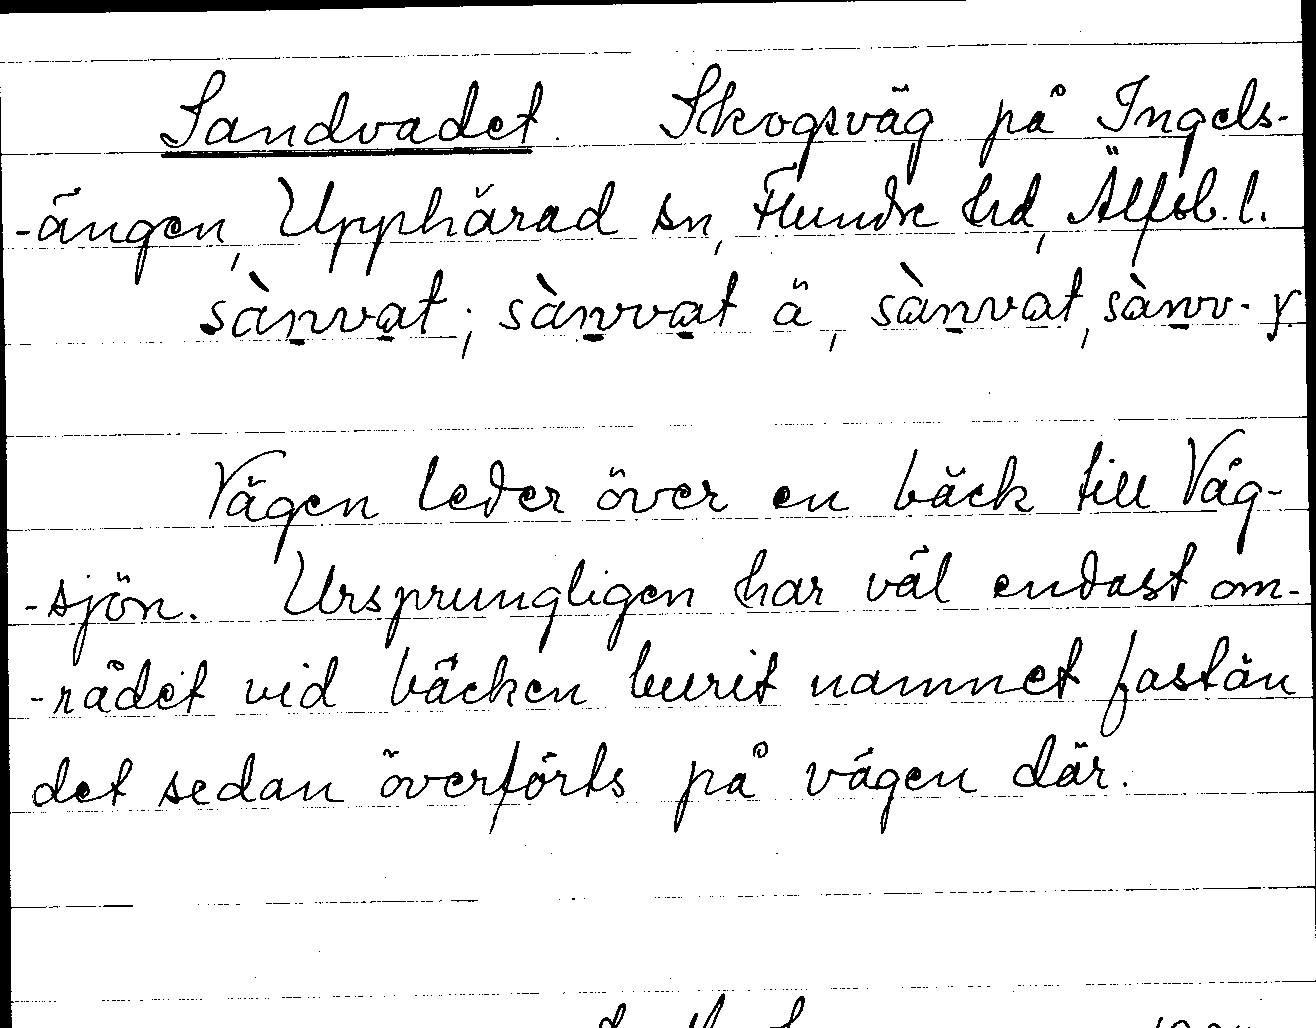 Sandvadet. Skogsväg på Ingels-
-ängen, Upphärad sn, Flundre hd, Älfsb. l.
sànvat; sànvat ä, sànvat, sànv- y.
Vägen leder över en bäck till Väg-
-sjön. Ursprungligen har väl endast om-
-rådet vid bäcken burit namnet fastän
det sedan överförts på vägen där.